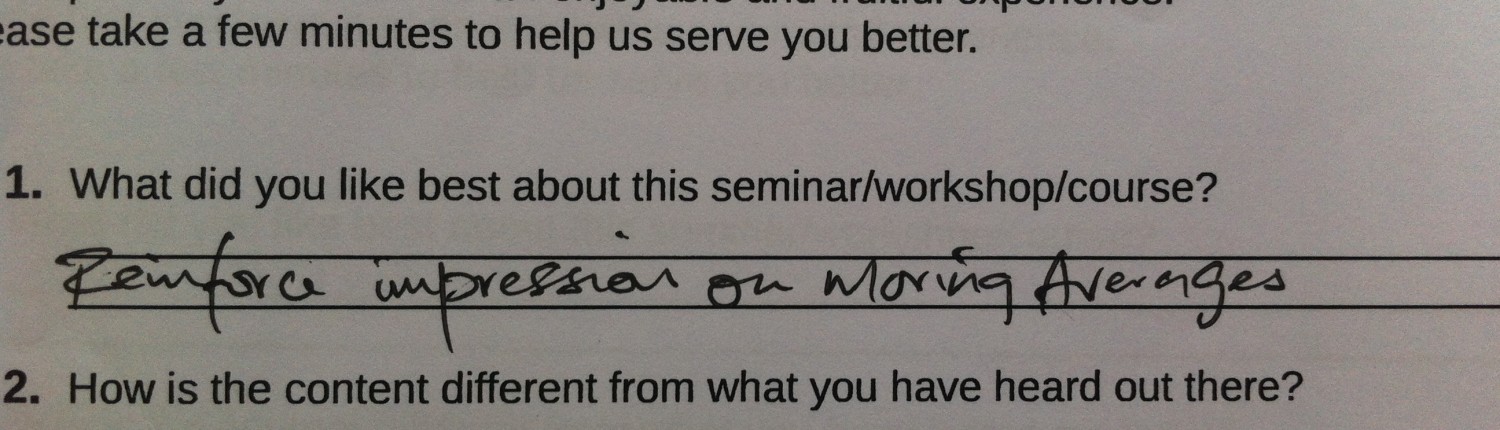 ease take a few minutes to help us serve you better.
1. What did you like best about this seminar/workshop/course?
Reinforce impression on Moving Averages
2. How is the content different from what you have heard out there?